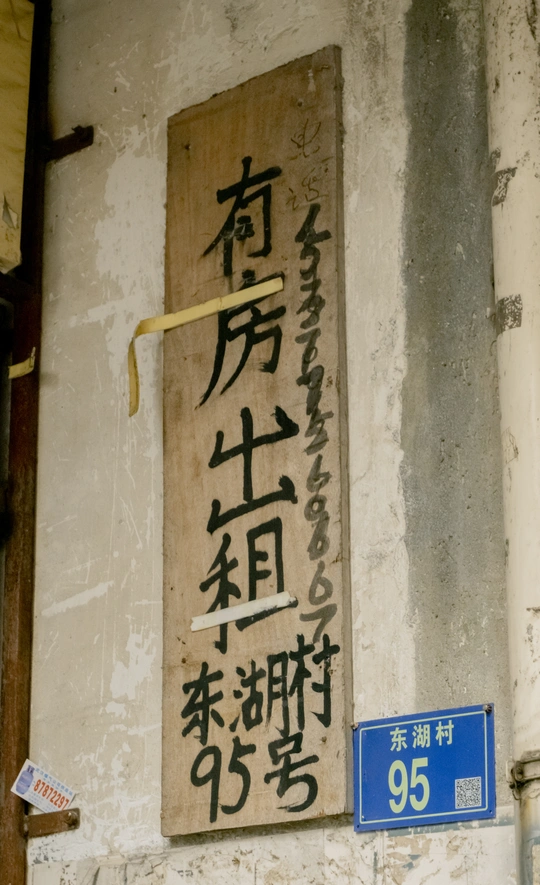 有房出租
东湖村
95号
电话
东湖村
95
87872297